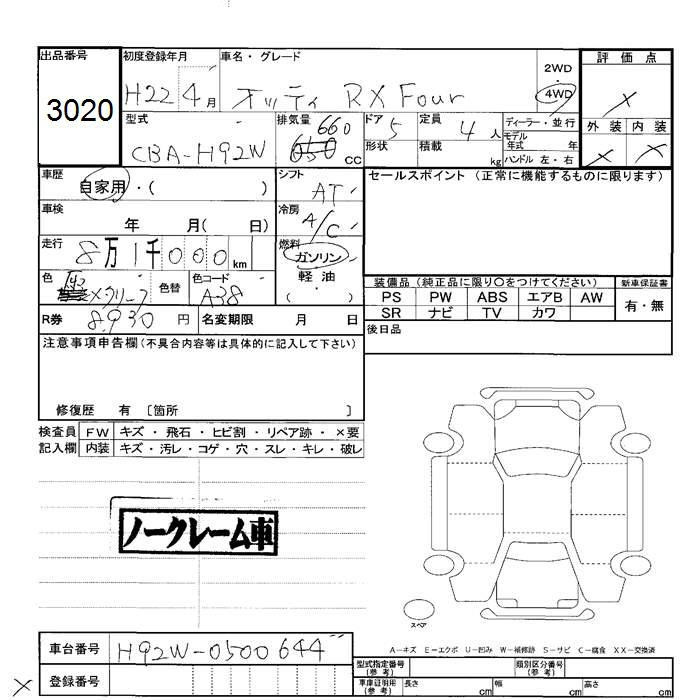 出品番号 初度登録年月 車名・グレード 評価点
3020 H22 4月 オッティ RX Four 2WD 4WD ×
型式 CBA-H92W 排気量 660 cc ドア 5 定員 4人 ディーラー・並行 外装 内装
形状 積載 kg モデル年式 年 ハンドル 左・右 × ×
車歴 自家用・( ) シフト AT セールスポイント (正常に機能するものに限ります)
車検 年 月( 日) 冷房 A/C
走行 8万1千000km 燃料 ガソリン・軽油・( )
色 色替 色コード A38
装備品 (純正品に限り○をつけてください) 新車保証書
PS PW ABS エアB AW 有・無
SR ナビ TV カワ
R券 8,930円 名変期限 月 日 後日品
注意事項申告欄 (不具合内容等は具体的に記入して下さい)
修復歴 有 〔箇所 〕
検査員 FW キズ・飛石・ヒビ割・リペア跡・×要
記入欄 内装 キズ・汚レ・コゲ・穴・スレ・キレ・破レ
ノークレーム車
スペア
A-キズ E-エクボ U-凹み W-補修跡 S-サビ C-腐食 XX-交換済
車台番号 H92W-0500644
型式指定番号(参考) 類別区分番号(参考)
× 登録番号
車庫証明用(参考) 長さ cm 幅 cm 高さ cm